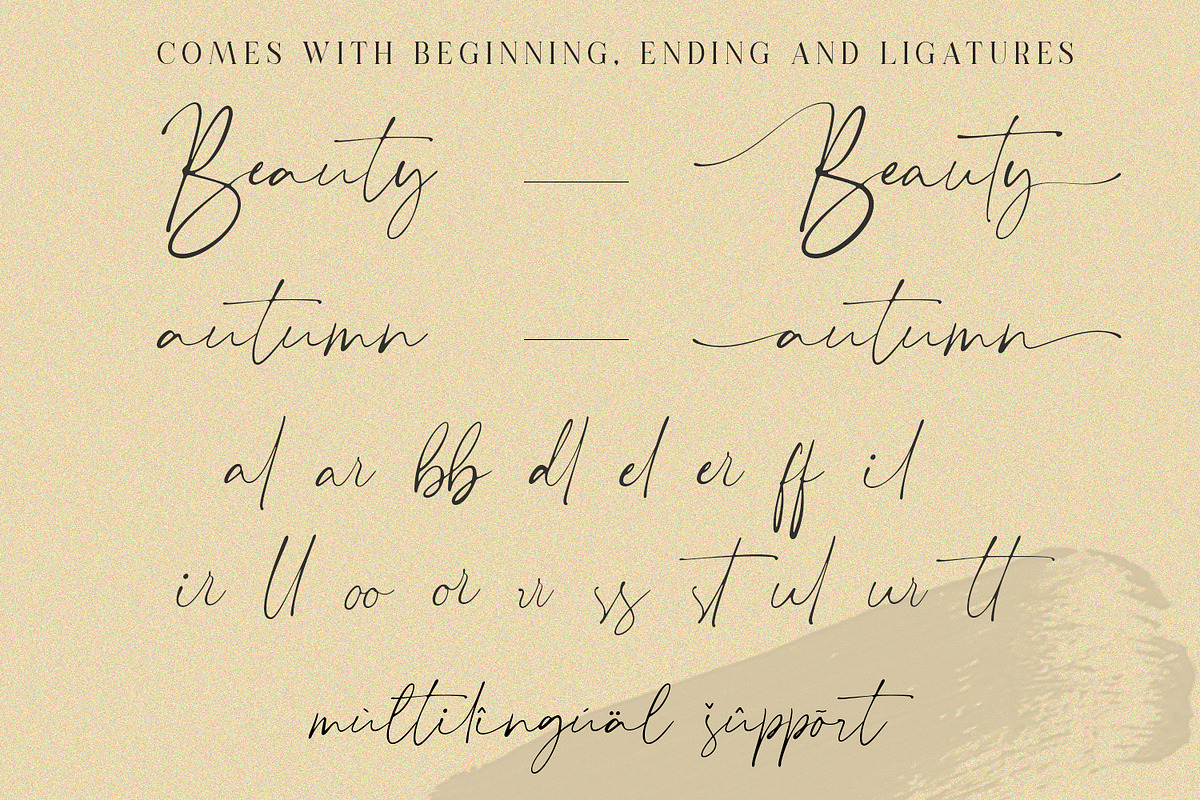 COMES WITH BEGINNING, ENDING AND LIGATURES
Beauty Beauty
autumn autumn
al ar bb dl el er ff il
ir ll oo or rr ss st ul ur tt
mùltilîngúäl šûppõrt